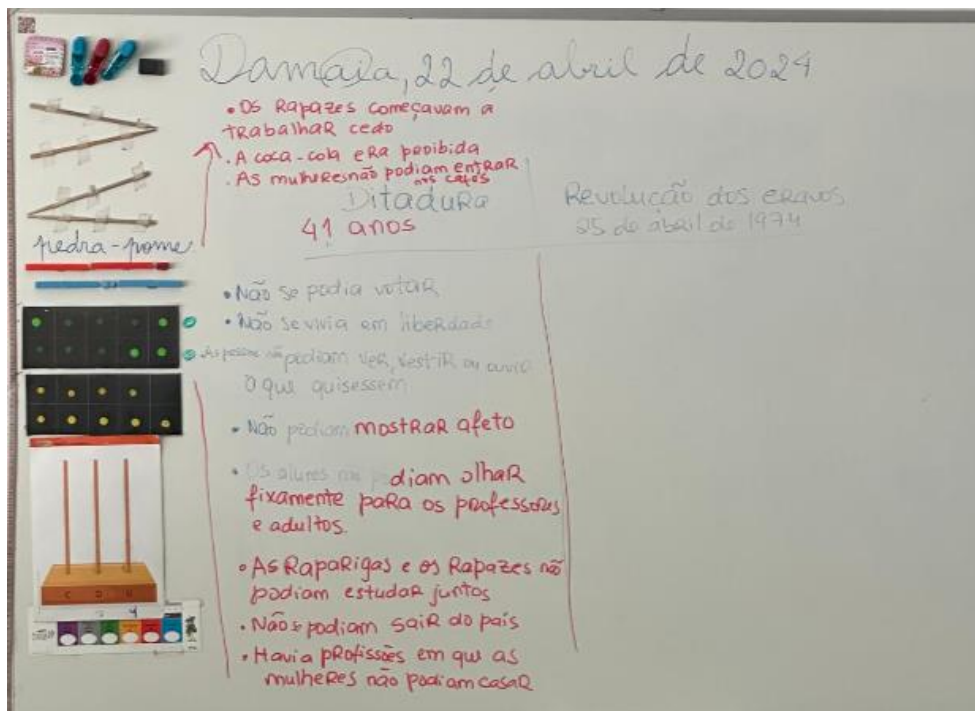 Damaia, 22 de abril de 2024
• Os Rapazes começavam a
trabalhar cedo
• A coca-cola era proibida
• As mulheres não podiam entrar
nos cafés
Ditadura
41 anos
Revolução dos cravos
25 de abril de 1974
pedra-pome
• Não se podia votar
• Não se vivia em liberdade
• As pessoas não podiam ver, vestir ou ouvir
o que quisessem
• Não podiam mostrar afeto
• Os alunos não podiam olhar
fixamente para os professores
e adultos.
• As Raparigas e os Rapazes não
podiam estudar juntos
• Não podiam sair do país
• Havia profissões em que as
mulheres não podiam casar
C D U
4